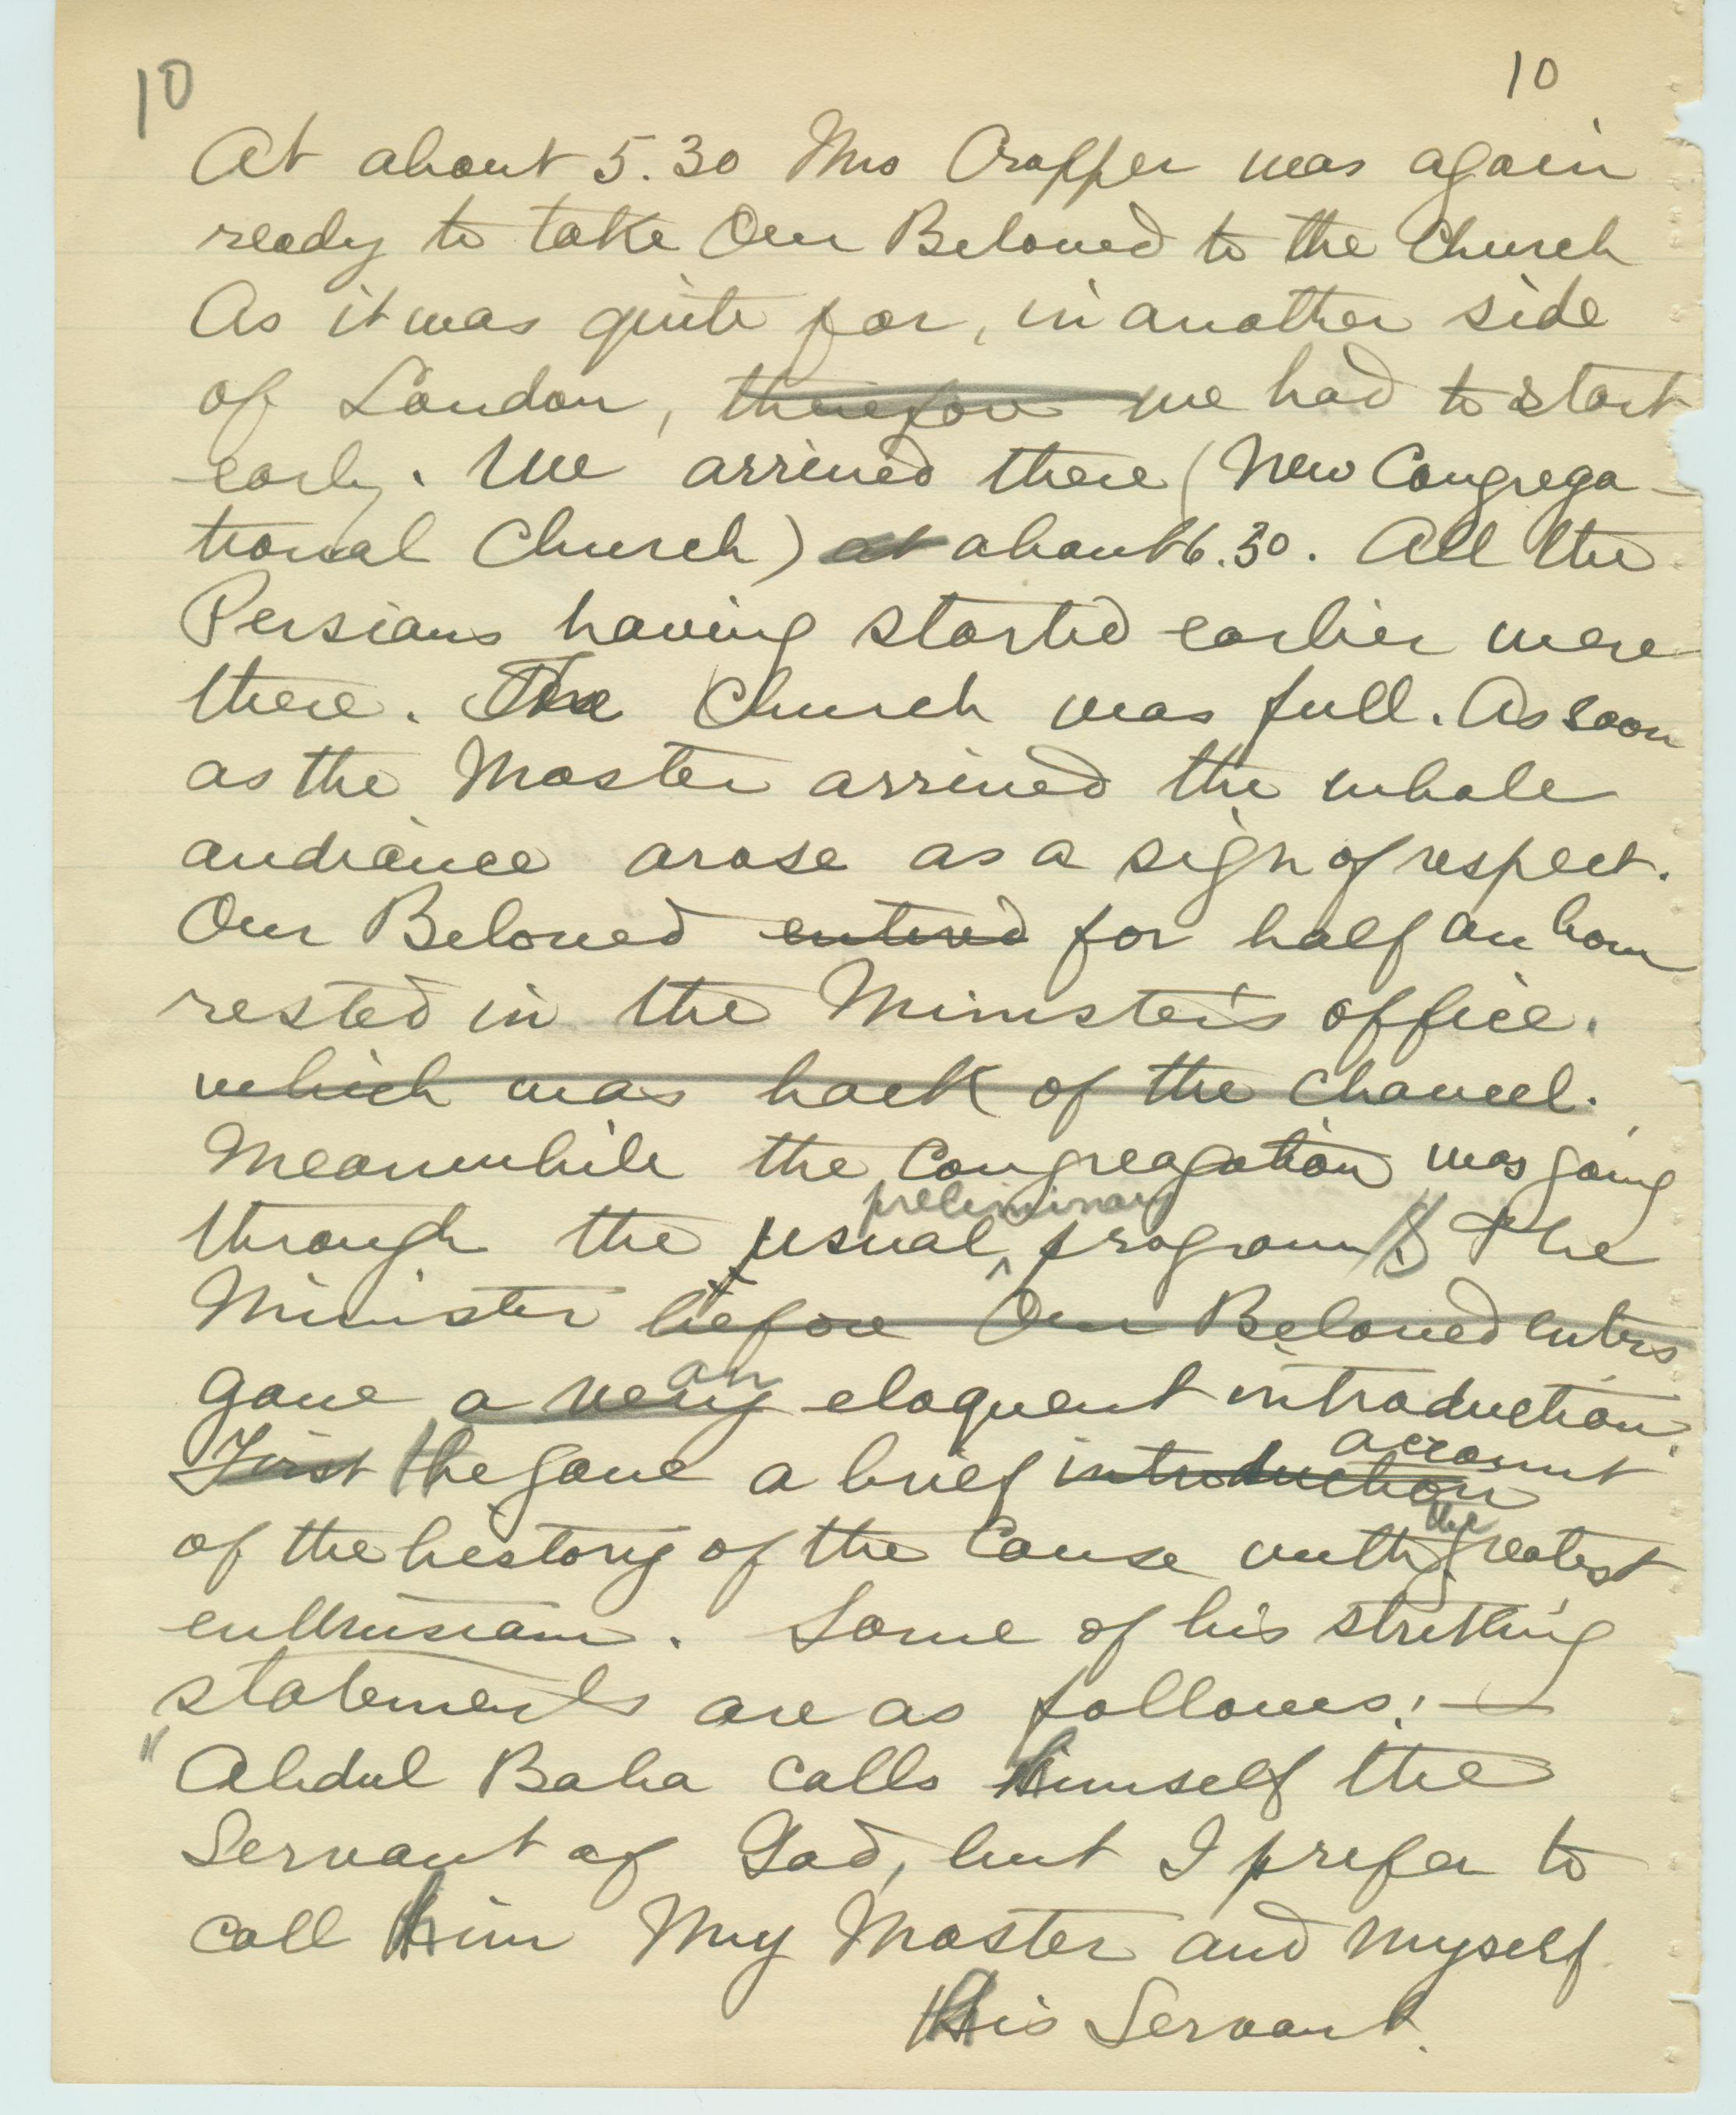 10 10
At about 5.30 Mrs Cropper was again
ready to take Our Beloved to the Church
As it was quite far, in another side
of London, therefore we had to start
early. We arrived there (New Congrega-
tional Church) at about 6.30. All the
Persians having started earlier were
there. The Church was full. As soon
as the Master arrived the whole
audience arose as a sign of respect.
Our Beloved entered for half an hour
rested in the Minister's office.
which was back of the chancel.
Meanwhile the Congreagation was going
preliminary
through the usual ^ program The
Minister before Our Beloved enters
an
gave a very eloquent introduction.
account
First he gave a brief introduction
the
of the history of the Cause with greatest
enthusiasm. Some of his striking
statements are as follows:—
"Abdul Baha calls himself the
Servant of God, but I prefer to
call him My Master and myself
His Servant.